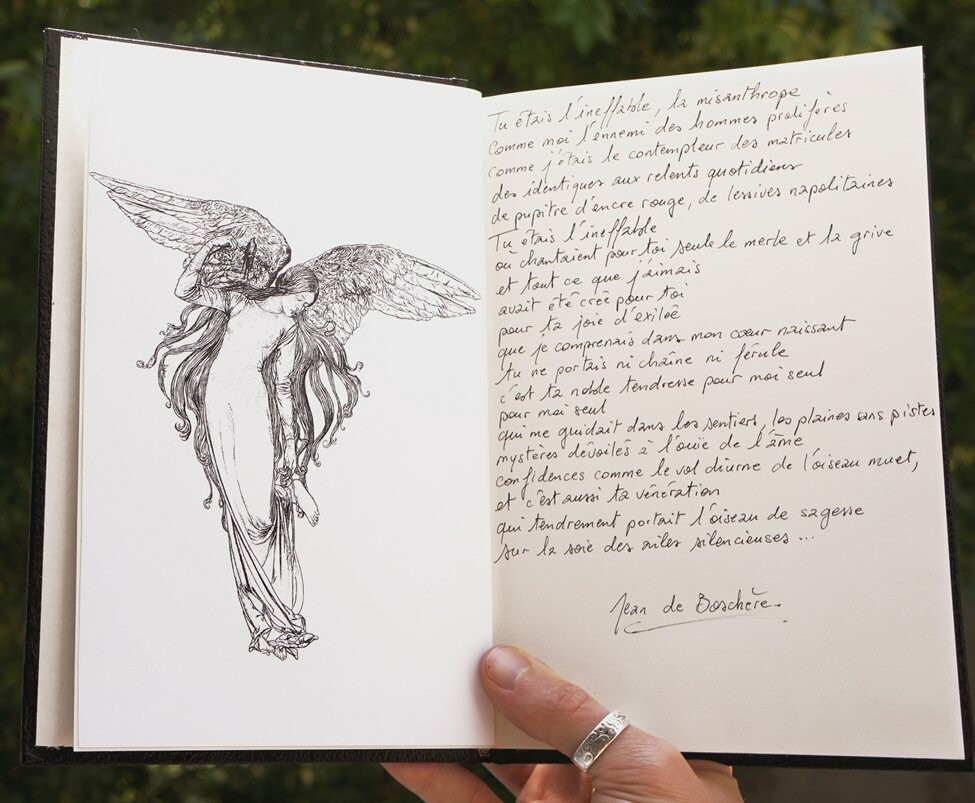 Tu étais l'ineffable, la misanthrope
comme moi l'ennemi des hommes prolifères
comme j'étais le contempleur des matricules
des identiques aux relents quotidiens
de pupitre d'encre rouge, de lessives napolitaines
Tu étais l'ineffable
où chantaient pour toi seule le merle et la grive
et tout ce que j'aimais
avait été créé pour toi
pour ta joie d'exilée
que je comprenais dans mon cœur naissant
tu ne portais ni chaîne ni férule
c'est ta noble tendresse pour moi seul
pour moi seul
qui me guidait dans les sentiers, les plaines sans pistes
mystères dévoilés à l'ouïe de l'âme
confidences comme le vol diurne de l'oiseau muet,
et c'est aussi ta vénération
qui tendrement portait l'oiseau de sagesse
sur la soie des ailes silencieuses ...
Jean de Boschère.